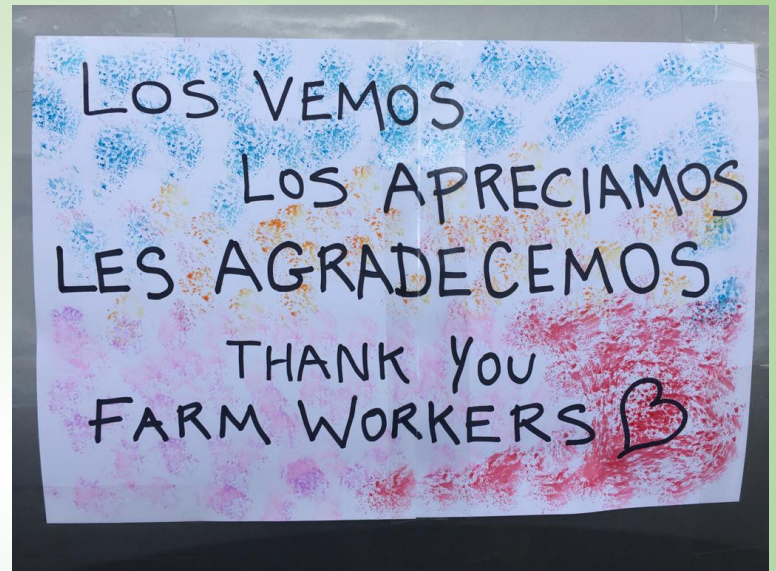 LOS VEMOS
LOS APRECIAMOS
LES AGRADECEMOS
THANK YOU
FARM WORKERS